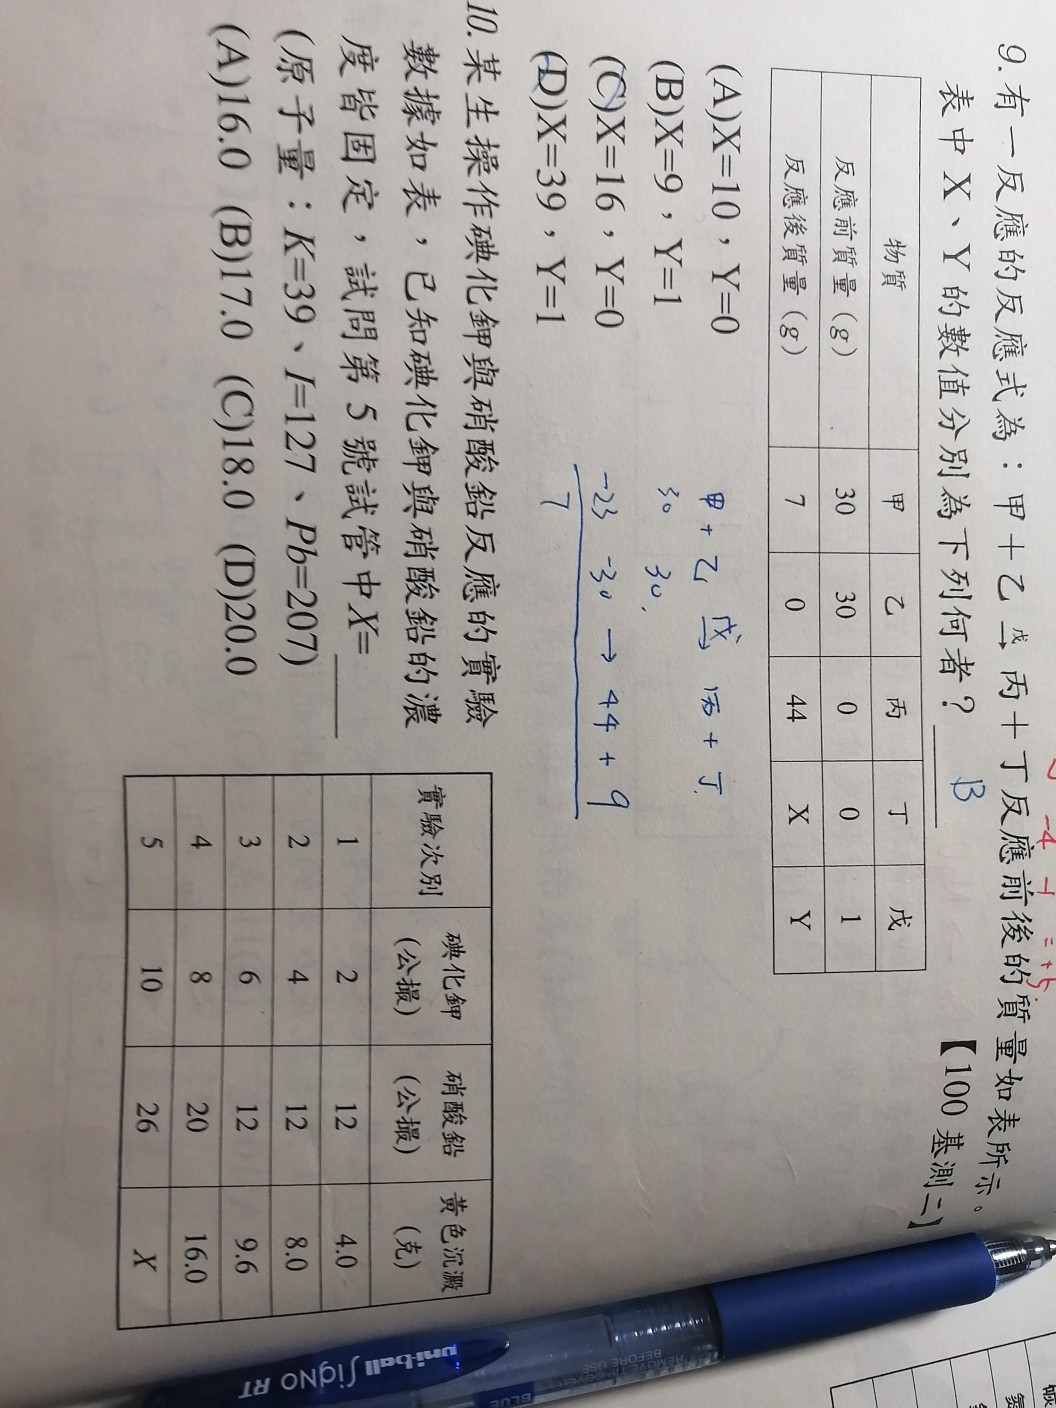 9.有一反應的反應式為：甲＋乙 戊→ 丙＋丁反應前後的質量如表所示。
表中 X、Y 的數值分別為下列何者？ B 【100 基測二】
物質 甲 乙 丙 丁 戊
反應前質量（g） 30 30 0 0 1
反應後質量（g） 7 0 44 X Y
(A)X=10，Y=0
(B)X=9，Y=1
(C)X=16，Y=0
(D)X=39，Y=1
甲 + 乙 戊→ 丙 + 丁
30 30
-23 -30 → 44 + 9
7
10.某生操作碘化鉀與硝酸鉛反應的實驗
數據如表，已知碘化鉀與硝酸鉛的濃
度皆固定，試問第 5 號試管中X=
(原子量：K=39、I=127、Pb=207)
(A)16.0 (B)17.0 (C)18.0 (D)20.0
實驗次別 碘化鉀(公撮) 硝酸鉛(公撮) 黃色沉澱(克)
1 2 12 4.0
2 4 12 8.0
3 6 12 9.6
4 8 20 16.0
5 10 26 X
-4
uni-ball Signo RT
BEFORE USE
BLUE